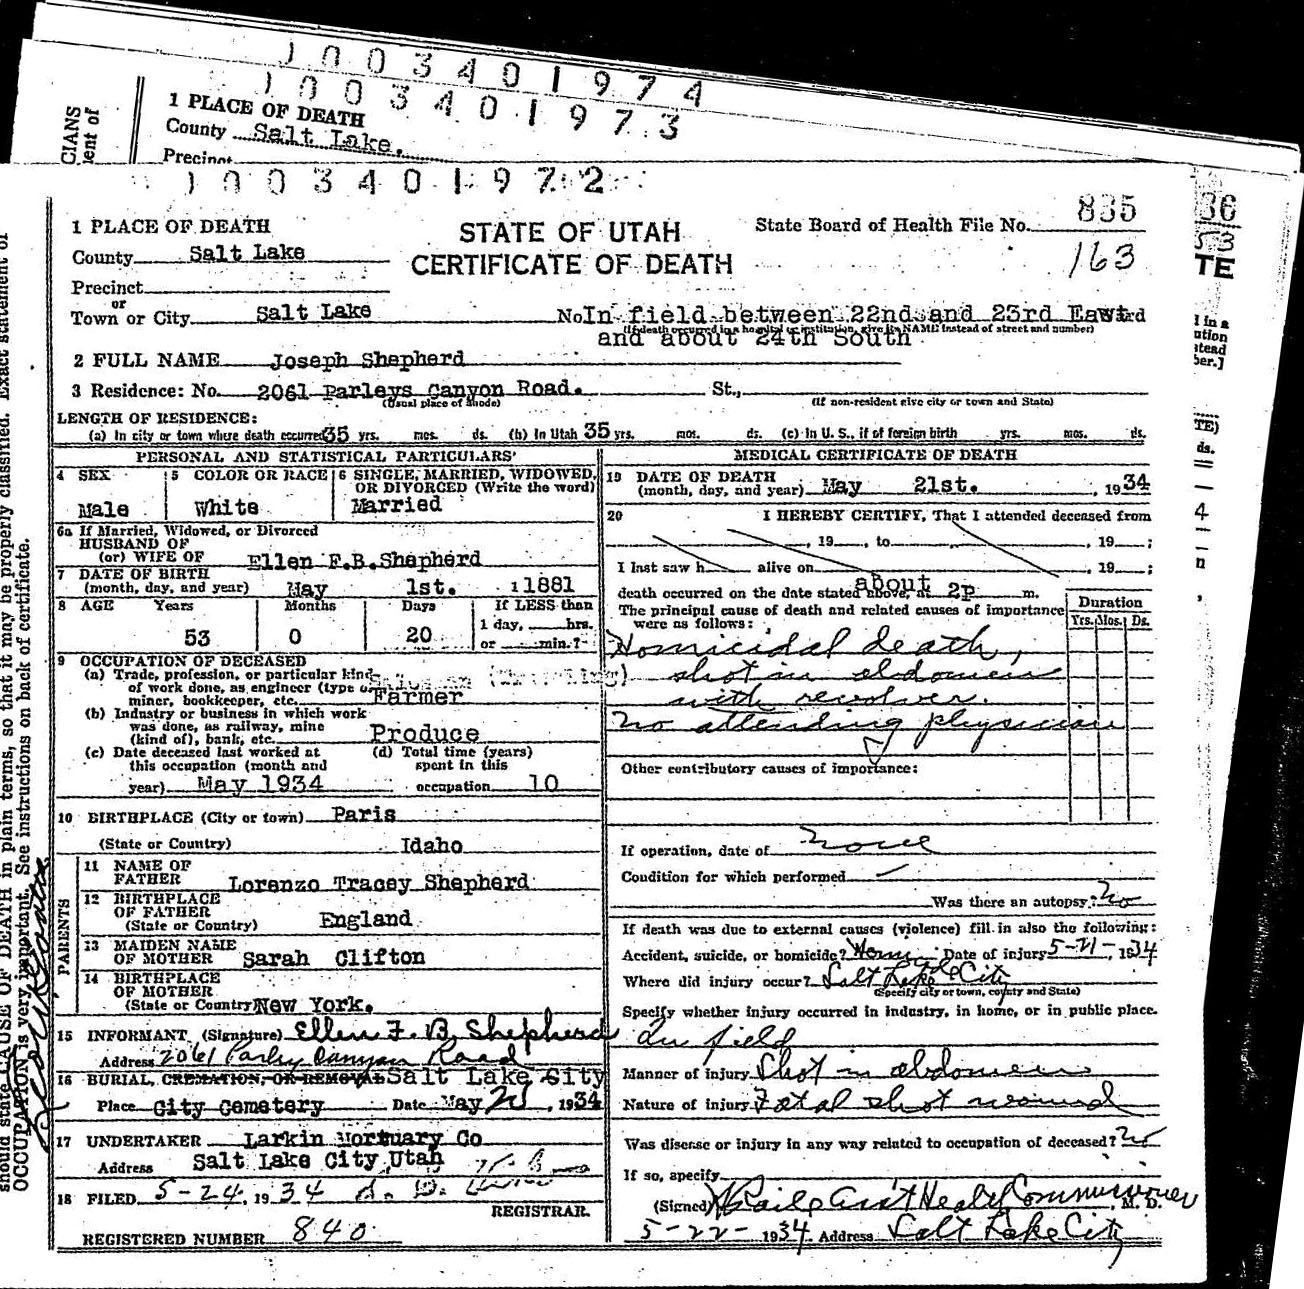 1003401974
1003401973
1 PLACE OF DEATH
County Salt Lake.
Precinct
CIANS
ent of
1003401972
36
53
TE
835
163
1 PLACE OF DEATH
STATE OF UTAH
State Board of Health File No.
County Salt Lake
CERTIFICATE OF DEATH
Precinct
or
Town or City Salt Lake
No In field between 22nd and 23rd East
(If death occurred in a hospital or institution, give its NAME instead of street and number)
and about 24th South
2 FULL NAME Joseph Shepherd
3 Residence: No. 2061 Parleys Canyon Road. St.,
(Usual place of abode) (If non-resident give city or town and State)
LENGTH OF RESIDENCE:
(a) In city or town where death occurred 35 yrs. mos. ds. (b) In Utah 35 yrs. mos. ds. (c) In U. S., if of foreign birth yrs. mos. ds.
PERSONAL AND STATISTICAL PARTICULARS
4 SEX
Male
5 COLOR OR RACE
White
6 SINGLE, MARRIED, WIDOWED,
OR DIVORCED (Write the word)
Married
6a If Married, Widowed, or Divorced
HUSBAND OF
(or) WIFE OF Ellen F.B.Shepherd
7 DATE OF BIRTH
(month, day, and year) May 1st. 1881
8 AGE Years Months Days If LESS than
1 day, hrs.
53 0 20 or min.?
9 OCCUPATION OF DECEASED
(a) Trade, profession, or particular kind
of work done, as engineer (type of
miner, bookkeeper, etc. Farmer
(b) Industry or business in which work
was done, as railway, mine
(kind of), bank, etc. Produce
(c) Date deceased last worked at
this occupation (month and
year) May 1934
(d) Total time (years)
spent in this
occupation 10
10 BIRTHPLACE (City or town) Paris
(State or Country) Idaho
PARENTS
11 NAME OF
FATHER Lorenzo Tracey Shepherd
12 BIRTHPLACE
OF FATHER
(State or Country) England
13 MAIDEN NAME
OF MOTHER Sarah Clifton
14 BIRTHPLACE
OF MOTHER
(State or Country) New York.
15 INFORMANT (Signature) Ellen F. B. Shepherd
Address 2061 Parley Canyon Road
16 BURIAL, CREMATION, OR REMOVAL Salt Lake City
Place City Cemetery Date May 1934
17 UNDERTAKER Larkin Mortuary Co
Address Salt Lake City Utah
18 FILED 5-24, 1934
REGISTRAR.
REGISTERED NUMBER 840
MEDICAL CERTIFICATE OF DEATH
19 DATE OF DEATH
(month, day, and year) May 21st. , 1934
20 I HEREBY CERTIFY, That I attended deceased from
, 19 , to , 19 ;
I last saw h alive on , 19 ;
about
death occurred on the date stated above, at 2p m.
The principal cause of death and related causes of importance
were as follows:
Duration
Yrs. Mos. Ds.
Homicidal death,
shot in abdomen
with revolver.
No attending physician
Other contributory causes of importance:
If operation, date of none
Condition for which performed
Was there an autopsy? No
If death was due to external causes (violence) fill in also the following:
Accident, suicide, or homicide? Homicide Date of injury 5-21-, 1934
Where did injury occur? Salt Lake City
(Specify city or town, county and State)
Specify whether injury occurred in industry, in home, or in public place.
In field
Manner of injury Shot in abdomen
Nature of injury Fatal shot wound
Was disease or injury in any way related to occupation of deceased? No
If so, specify
(Signed) Ass't Health Commissioner, M. D.
5-22-1934 Address Salt Lake City
should state CAUSE OF DEATH in plain terms, so that it may be properly classified. Exact statement of
OCCUPATION is very important. See instructions on back of certificate.